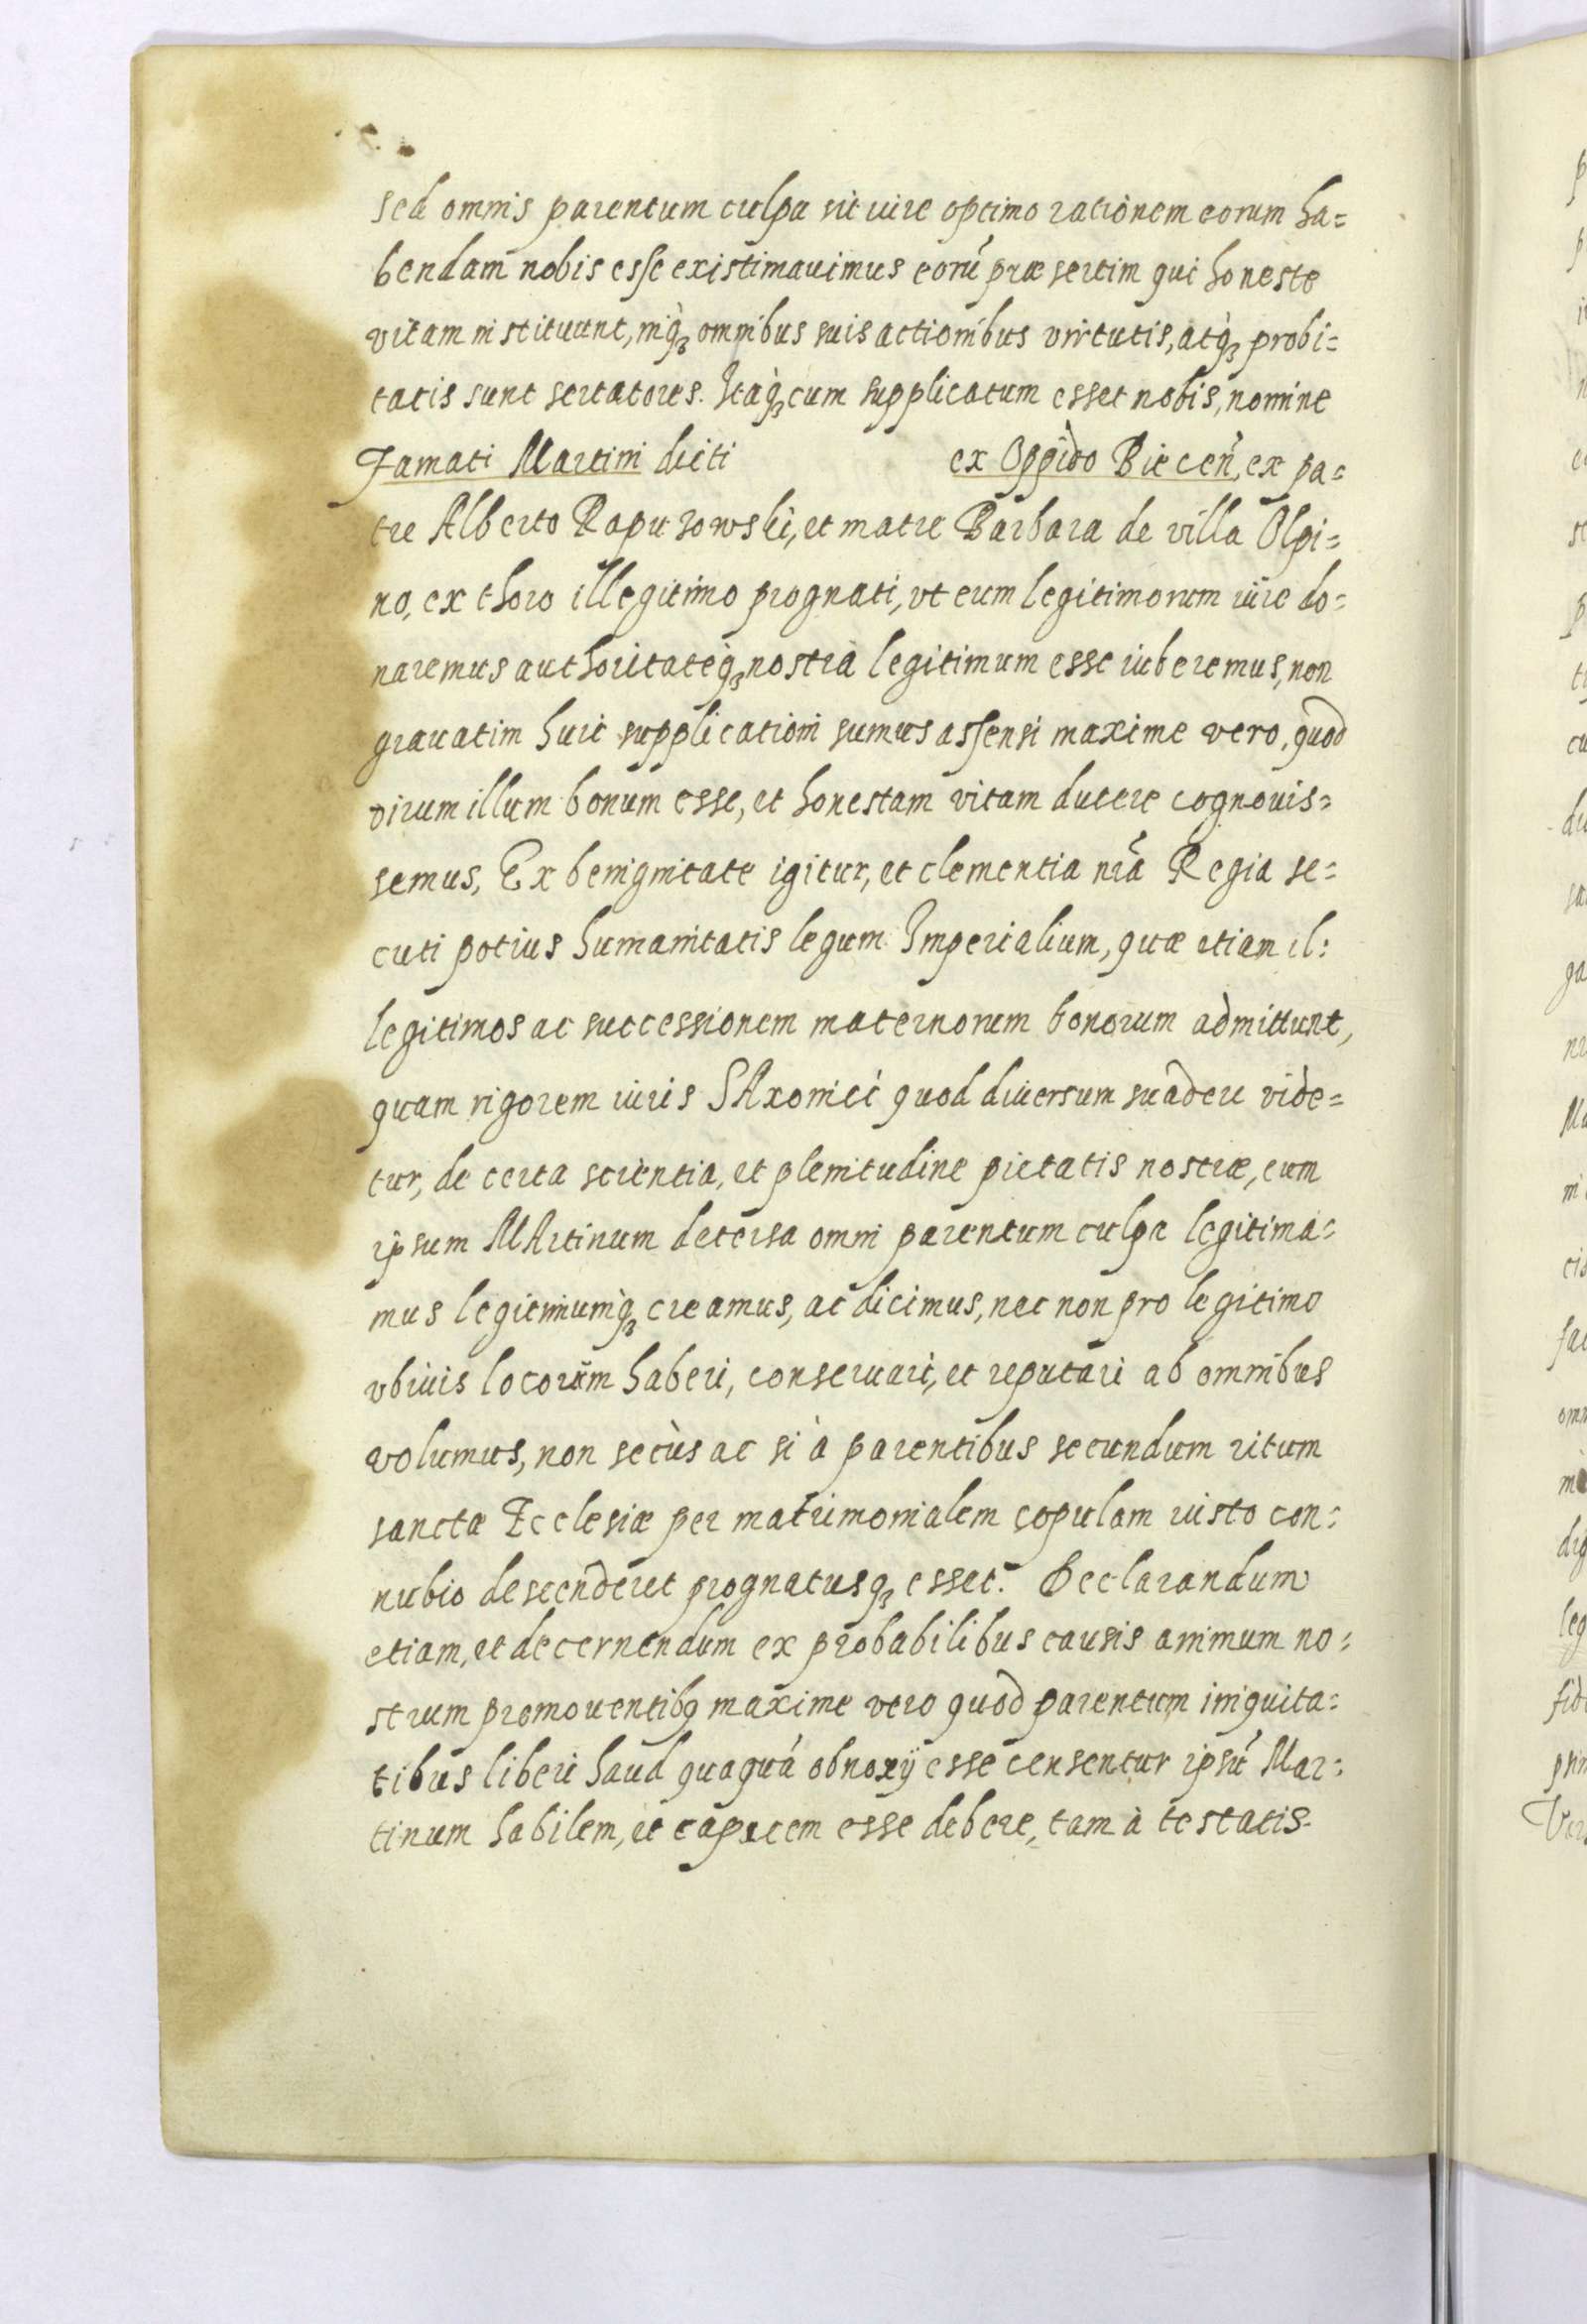 sed omnis parentum culpa sit iure optimo rationem eorum ha=
bendam nobis esse existimauimus eorū præsertim qui honeste
vitam instituunt, inq́ꝫ omnibus suis actionibus virtutis, atq́ꝫ probi=
tatis sunt sectatores. Itaq́ꝫ cum supplicatum esset nobis, nomine
Famati Martini dicti ex Oppido Biecen̄, ex pa=
tre Alberto Rapuzowski, et matre Barbara de villa Olpi=
no, ex thoro illegitimo prognati, vt eum legitimorum iure do=
naremus authoritateq́ꝫ nostra legitimum esse iuberemus, non
grauatim huic supplicationi sumus assensi maxime vero, quod
virum illum bonum esse, et honestam vitam ducere cognouis=
semus, Ex benignitate igitur, et clementia nrā Regia se=
cuti potius humanitatis legum Imperialium, quæ etiam il=
legitimos ac successionem maternorum bonorum admittunt,
quam rigorem iuris SAxonici quod diuersum suadere vide=
tur, de certa scientia, et plenitudine pietatis nostræ, eum
ipsum MArtinum detersa omni parentum culpa legitima=
mus legitimumq́ꝫ creamus, ac dicimus, nec non pro legitimo
vbiuis locorum haberi, conseruari, et reputari ab omnibus
volumus, non secùs ac si à parentibus secundum ritum
sanctæ Ecclesiæ per matrimonialem copulam iusto con=
nubio descenderet prognatusqꝫ esset. Declarandum
etiam, et decernendum ex probabilibus causis animum no=
strum promouentibꝫ maxime vero quod parentum iniquita=
tibus liberi haud quaquā obnoxij esse censentur ipsū Mar=
tinum habilem, et capacem esse debere, tam à testatis